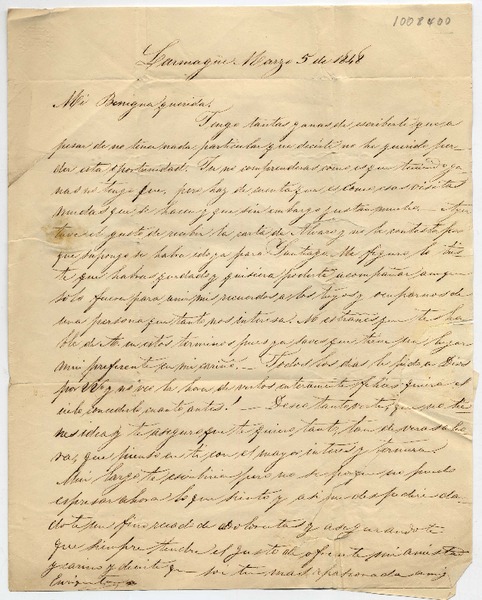 1008400
Larmagüe. Marzo 5 de 1848
Mi Benigna querida.
Tengo tantas ganas de escribirte que a
pesar de no tener nada particular que decirte no he querido per-
der esta oportunidad. Tu no comprenderas como es que teniendo ga-
nas no tengo que, pero haz de cuenta que es como esas visitas
mudas que se hacen y que sin embargo gustan mucho. — Ayer
tuve el gusto de recibir la carta de y no la contesto por
que supongo se habra ido ya para Santiago. Me figuro lo tris-
te que habras quedado y quisiera poderte acompañar aunque
solo fuera para unir mis recuerdos a los tuyos y ocuparnos de
una persona que tanto nos interesa. No estrañes que te ha-
ble de en estos terminos pues ya sabes que tiene un lugar
mui preferente en mi cariño. — Todos los dias le pido a Dios
por y no veo la hora de verlos enteramente felices quiera el
cielo concederlo cuanto antes! — Deseo tanto verte, que no tie-
nes idea y te aseguro que te quiero tanto, tan de veras ahora
que pienso en ti con el mayor interes y ternura.
Mui largo te escribiria pero no se porque no puedo
espresar ahora lo que siento y asi me despedire dan-
dote un fino recado de Dolores y asegurandote
que siempre tendre el gusto de ofrecerte mi amistad
y cariño y decirte que soi tu mas apasionada amiga